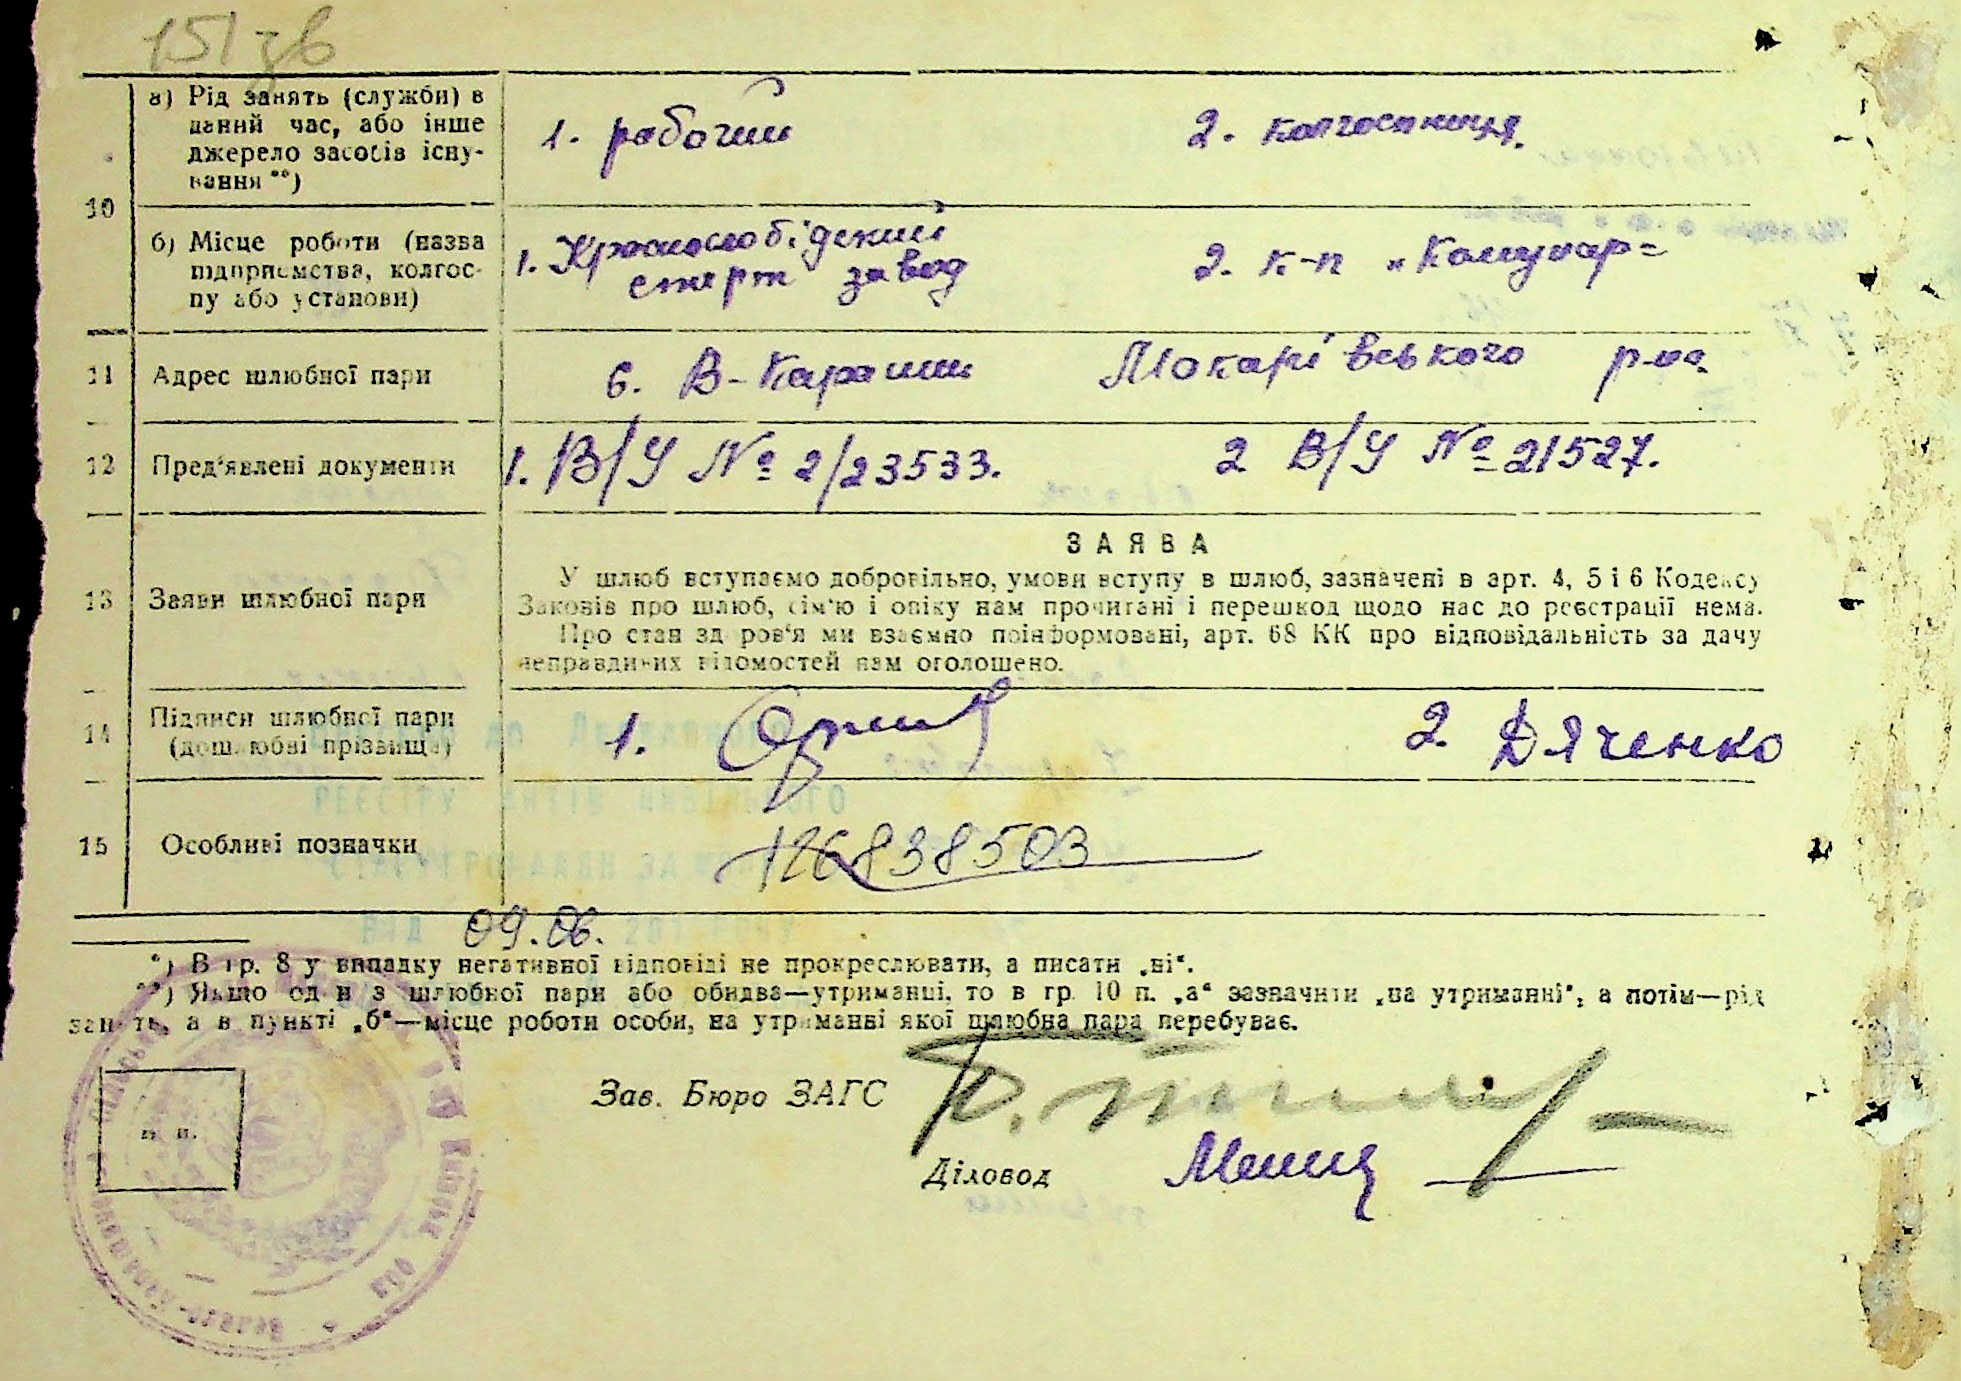 151 зв
а) Рід занять (служби) в
даний час, або інше
джерело засобів існу-
вання **)
1. робочий
2. колгоспниця.
10
б) Місце роботи (назва
підприємства, колгос-
пу або установи)
1. Красносло бідський
спирт завод
2. к-п „Комунар=
11
Адрес шлюбної пари
с. В-Карашин Макарівського р-на
12
Пред'явлені документи
1. В/У № 2/23533.
2 В/У № 21527.
ЗАЯВА
13
Заяви шлюбної пари
У шлюб вступаємо добровільно, умови вступу в шлюб, зазначені в арт. 4, 5 і 6 Кодексу
Законів про шлюб, сім'ю і опіку нам прочитані і перешкод щодо нас до реєстрації нема.
Про стан здоров'я ми взаємно поінформовані, арт. 68 КК про відповідальність за дачу
неправдивих відомостей нам оголошено.
14
Підписи шлюбної пари
(дошлюбні прізвища)
1.
2. Дяченко
15
Особливі позначки
126838503
РЕЄСТРУ АКТІВ ЦИВІЛЬНОГО
ВІД 09.06. 201 РОКУ
*) В гр. 8 у випадку негативної відповіді не прокреслювати, а писати „ні“.
**) Якщо один з шлюбної пари або обидва—утриманці, то в гр. 10 п. „а“ зазначити „на утриманні“, а потім—рід
занять, а в пункті „б“—місце роботи особи, на утриманні якої шлюбна пара перебуває.
Зав. Бюро ЗАГС
м. п.
Діловод